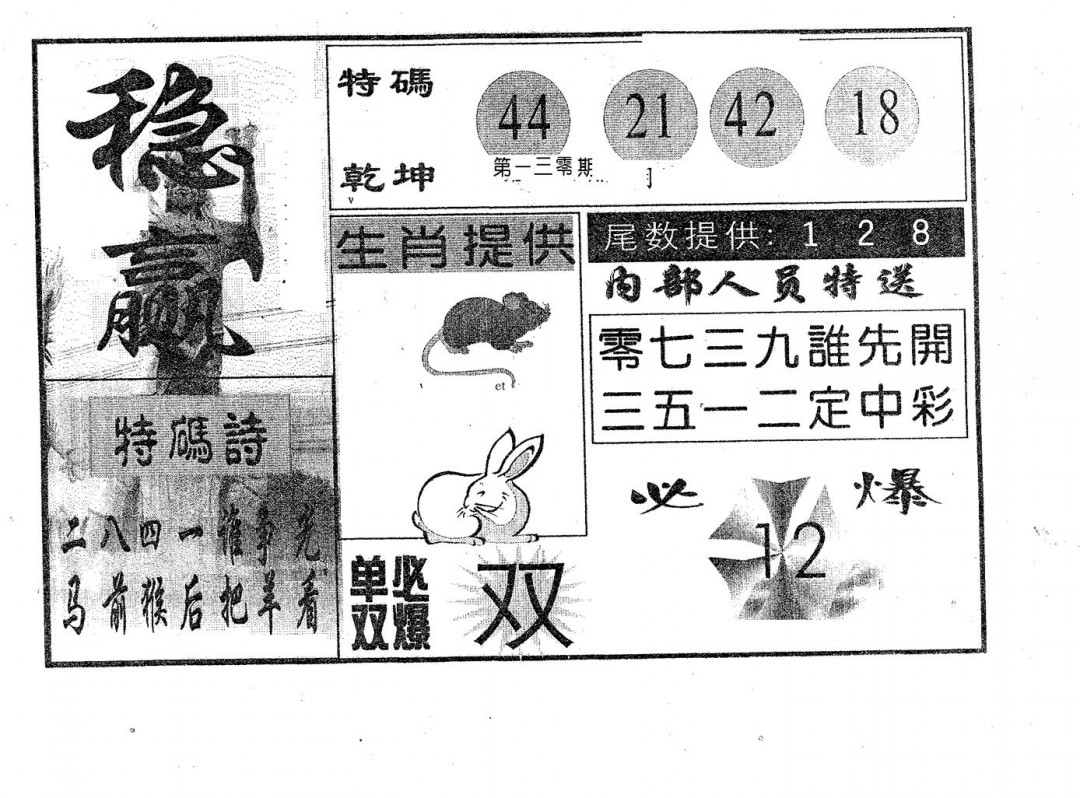 稳赢
特碼
乾坤
44 21 42 18
第一三零期
生肖提供
et
尾数提供: 1 2 8
内部人员特送
零七三九誰先開
三五一二定中彩
特碼詩
二八四一谁争先
马前猴后把羊看
单必
双爆
双
必爆
12